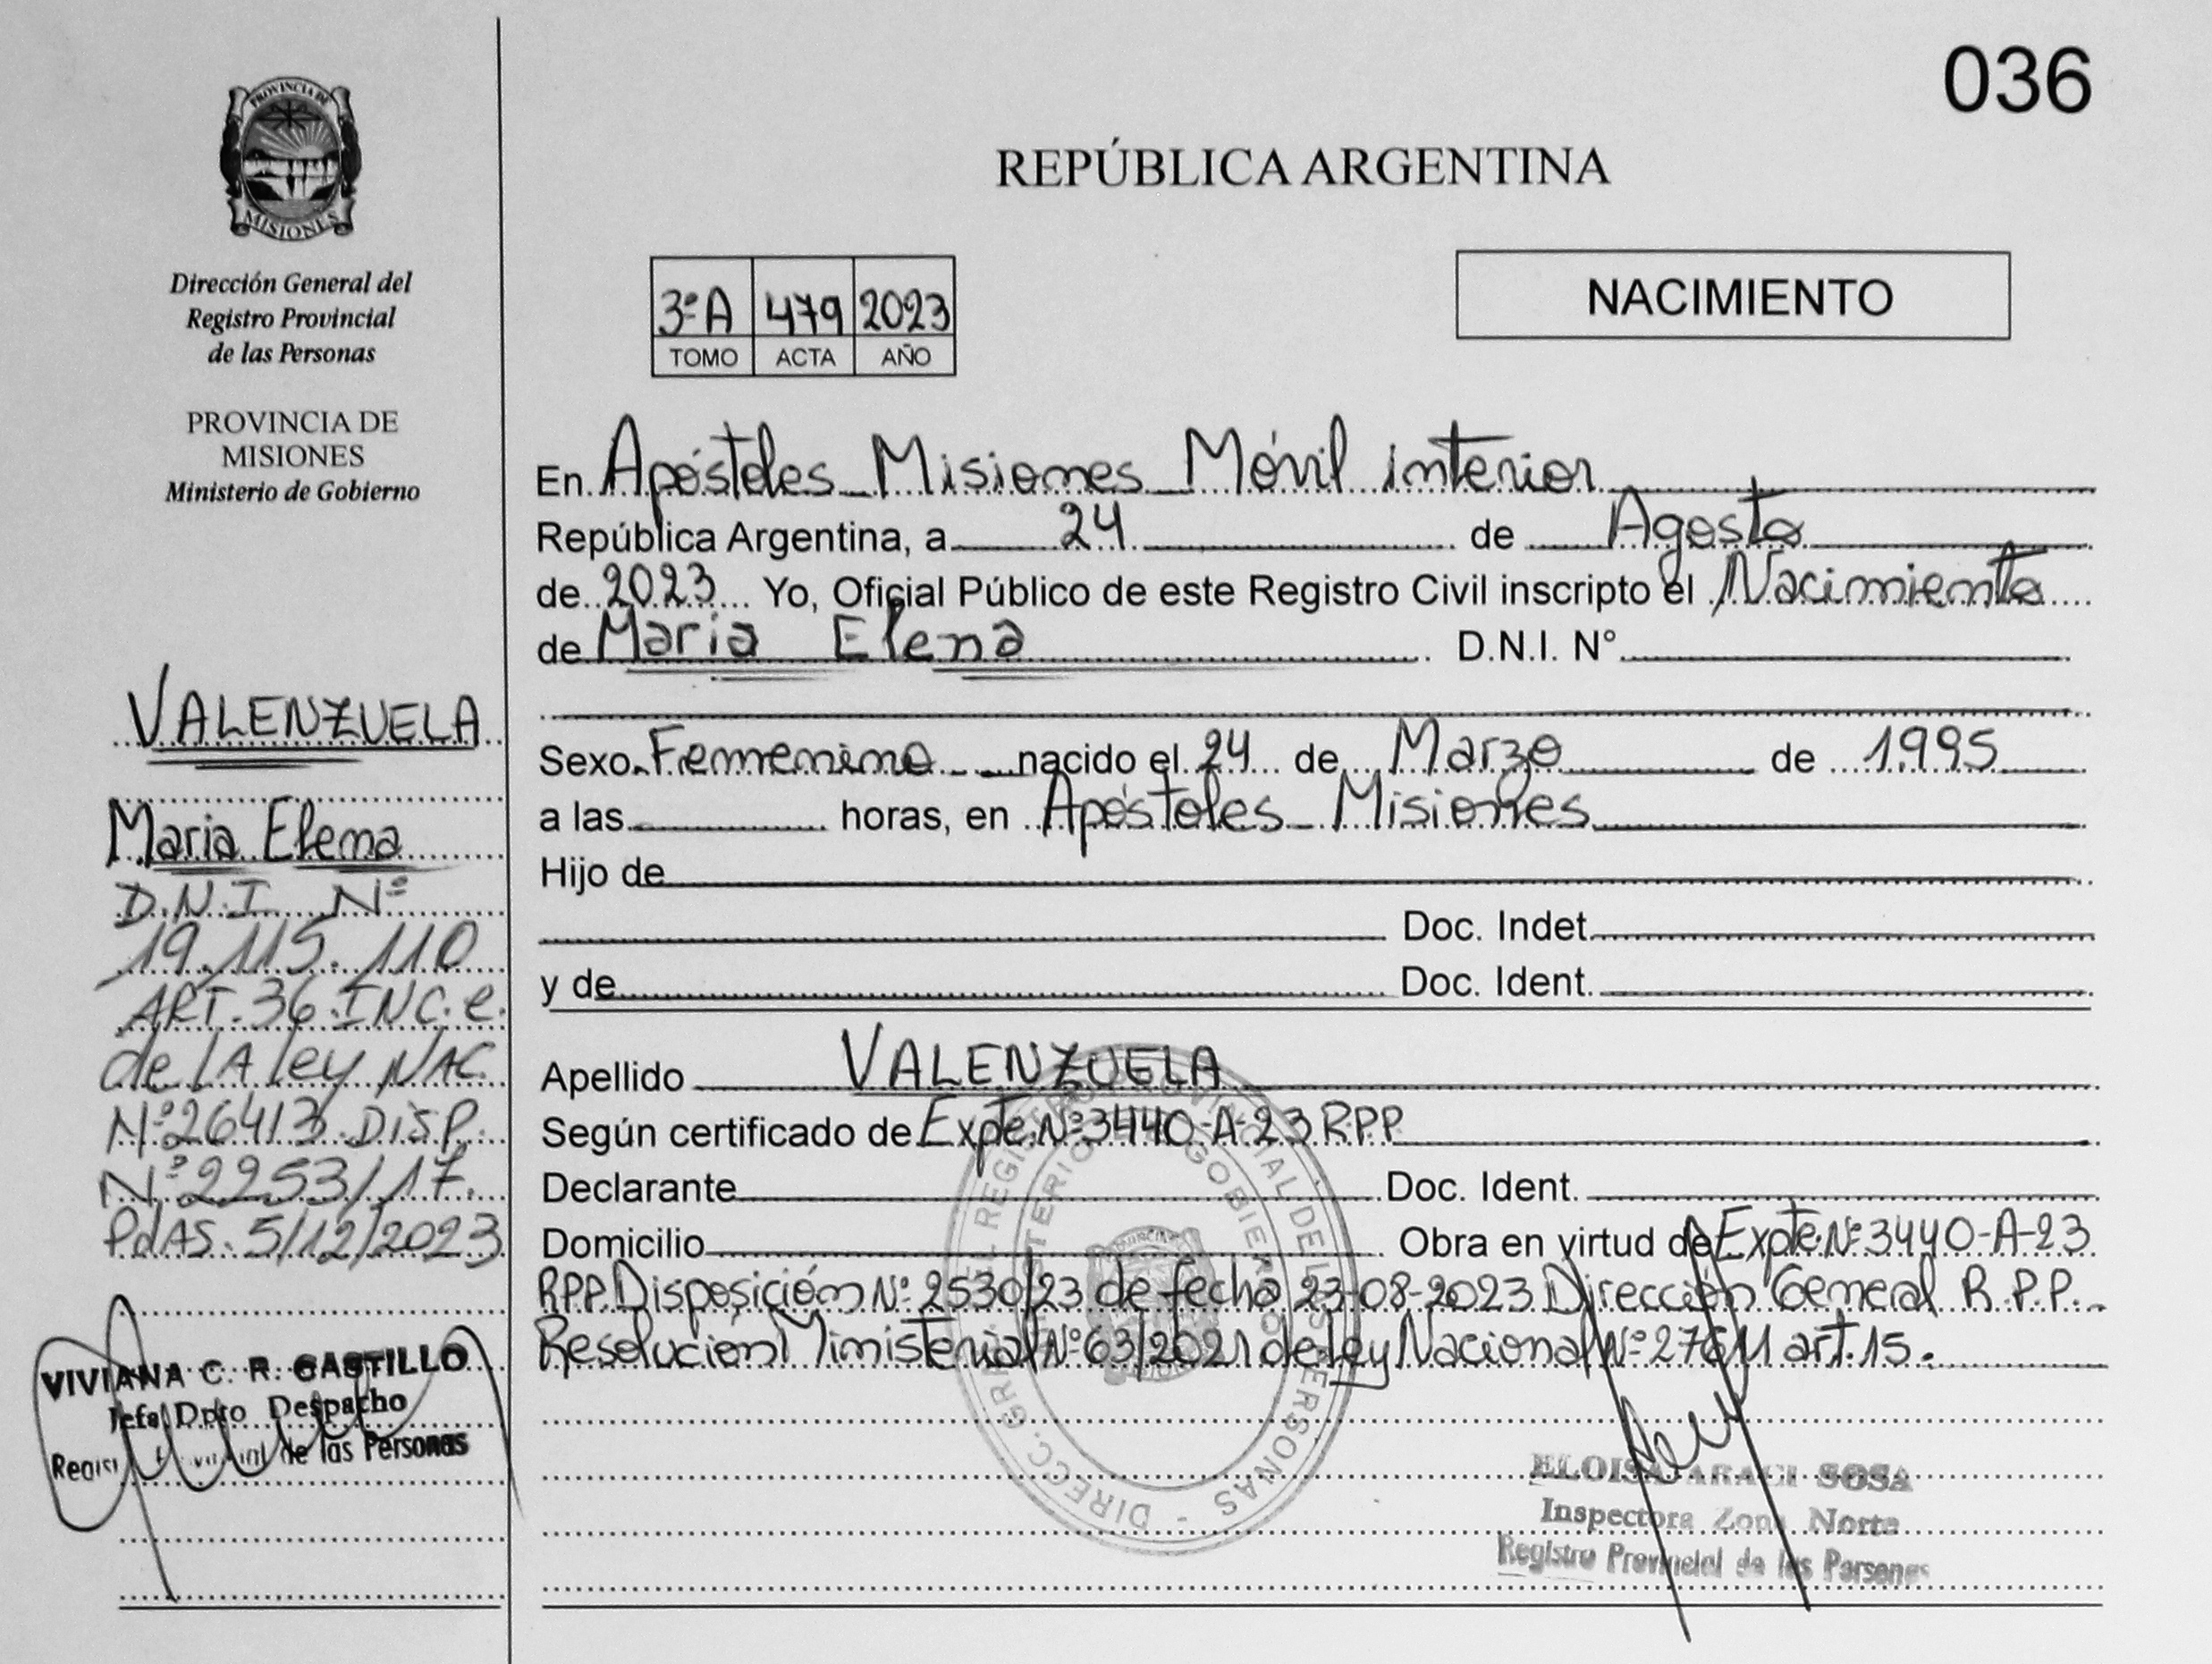 036
PROVINCIA DE
MISIONES
Dirección General del
Registro Provincial
de las Personas
PROVINCIA DE
MISIONES
Ministerio de Gobierno
VALENZUELA
Maria Elena
D.N.I. Nº
19.115.110
ART. 36 INC. e.
de lA ley NAC
Nº 26413 DISP.
Nº 2253/17.
PdAS. 5/12/2023
VIVIANA C. R. CASTILLO
Jefa Dpto Despacho
de las Personas
REPÚBLICA ARGENTINA
3ºA 479 2023
TOMO ACTA AÑO
NACIMIENTO
En Apóstoles Misiones Móvil interior
República Argentina, a 24 de Agosto
de 2023 Yo, Oficial Público de este Registro Civil inscripto el Nacimiento
de Maria Elena D.N.I. N°
Sexo Femenino nacido el 24 de Marzo de 1995
a las horas, en Apóstoles Misiones
Hijo de
Doc. Indet.
y de Doc. Ident.
Apellido VALENZUELA
Según certificado de Expte. Nº 3440-A-23 RPP
Declarante Doc. Ident.
Domicilio Obra en virtud de Expte. Nº 3440-A-23
RPP. Disposición Nº 2530/23 de fecha 23-08-2023 Dirección General R.P.P.
Resolucion Ministerial Nº 63/2021 de ley Nacional Nº 27611 art. 15.
ELOISA ARACI SOSA
Inspectora Zona Norte
Registro Provincial de las Personas